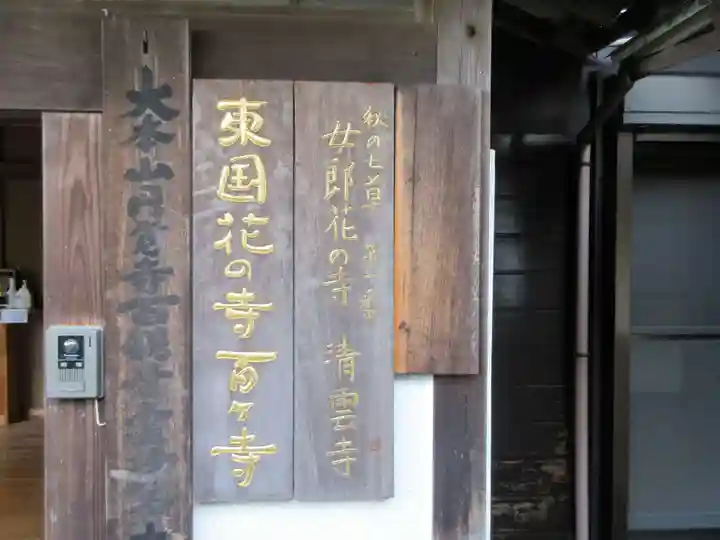 秋の七草 第一番
女郎花の寺 清雲寺
東国花の寺百ヶ寺
大本山円覚寺